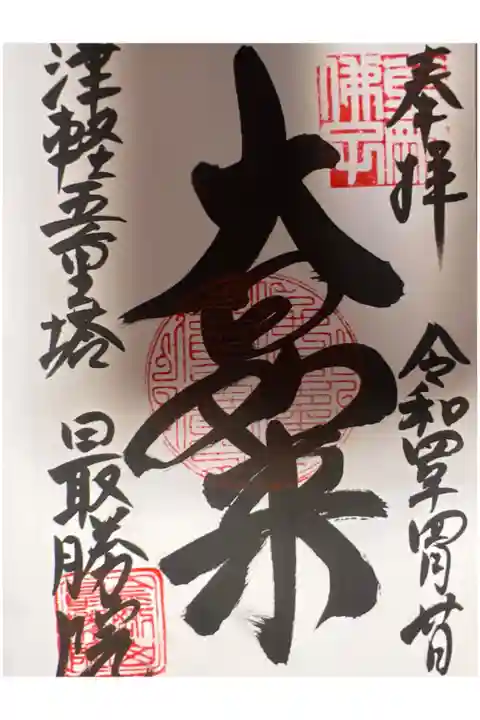 奉拝
令和四年四月廿日
大日如来
津軽五重塔 最勝院